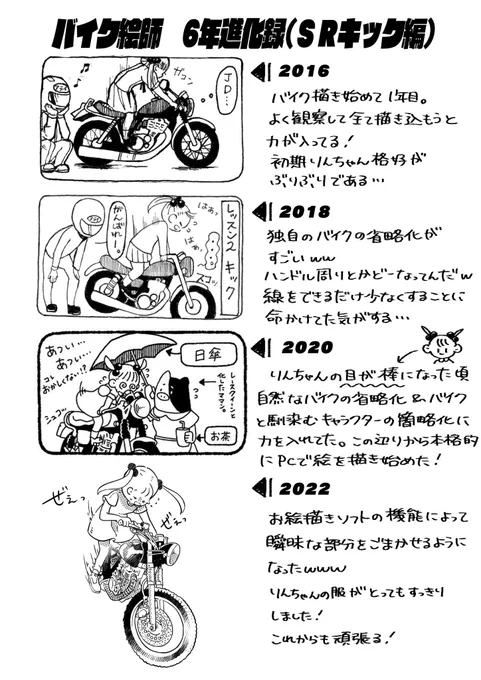 バイク絵師 6年進化録(SRキック編)
2016
バイク描き始めて1年目。
よく観察して全て描き込もうと
力が入ってる!
初期りんちゃん格好が
ぶりぶりである…
ガコン
JD…
2018
独自のバイクの省略化が
すごいww
ハンドル周りとかどーなってんだw
線をできるだけ少なくすることに
命かけてた気がする…
がんばれー。
はあっ
はぁ、
スコッ
レッスン2 キック
2020
りんちゃんの目が棒になった頃
自然なバイクの省略化&バイク
と馴染むキャラクターの簡略化に
力を入れてた。この辺りから本格的
にPCで絵を描き始めた!
あつい…
あつい…
コレ
おかしくない!?
シュコン
日傘
レースクィーンと
化したママン。
お茶
2022
お絵描きソトの機能によって
瞬昧な部分をごまかせるように
なったwww
りんちゃんの服がとってもすっきり
しました!
これからも頑張る!
ぜぇっ
ぜぇっ